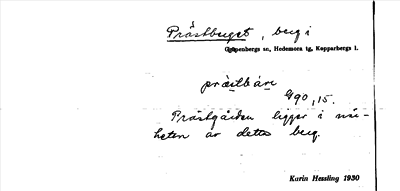 Prästberget, berg i
Garpenbergs sn, Hedemora tg, Kopparbergs l.
prästbäre
490, 15.
Prästgården ligger i när-
heten av detta berg.
Karin Hessling 1930